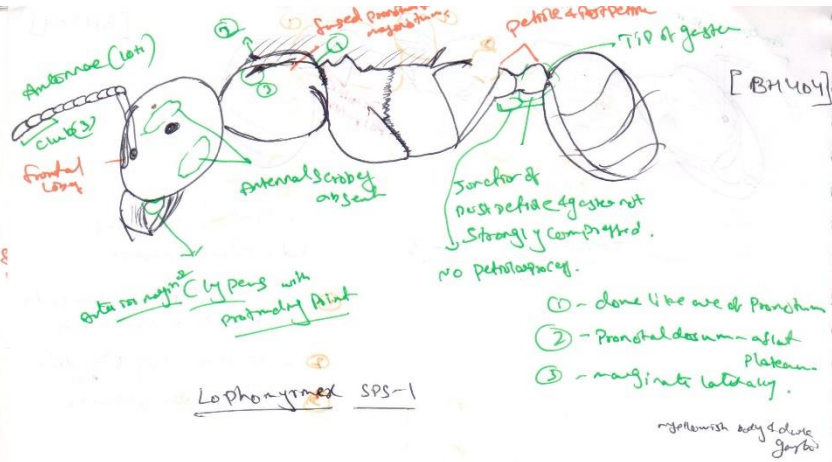 ②
①
③
fused pronotum
mesonotum
petiole & postpetiole
TIP of gaster
[BH404]
Antennae (
club(3)
frontal
lobes
Antennal Scrobes
absent
Junction of
postpetiole & gaster not
Strongly compressed.
NO petiolar process.
Anterior margin of Clypeus with
protruding Point
① - dome like are of Pronotum
② - Pronotal dosum - a flat
Plateau
③ - marginate laterally.
Lophomyrmex SPS-1
yellowish body & dark
gaster